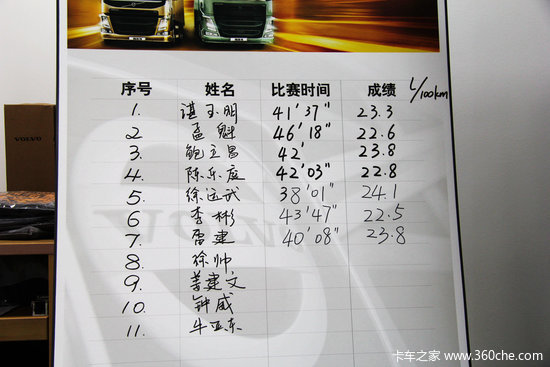 序号 姓名 比赛时间 成绩 L/100km
1. 谌玉明 41'37" 23.3
2 孟魁 46'18" 22.6
3. 鲍立昌 42' 23.8
4. 陈乐庭 42'03" 22.8
5 徐远武 38'01" 24.1
6 李彬 43'47" 22.5
7 雷建 40'08" 23.8
8. 徐帅
9. 姜建文
10. 钟威
11. 牛亚东
VOLVO
卡车之家 www.360che.com